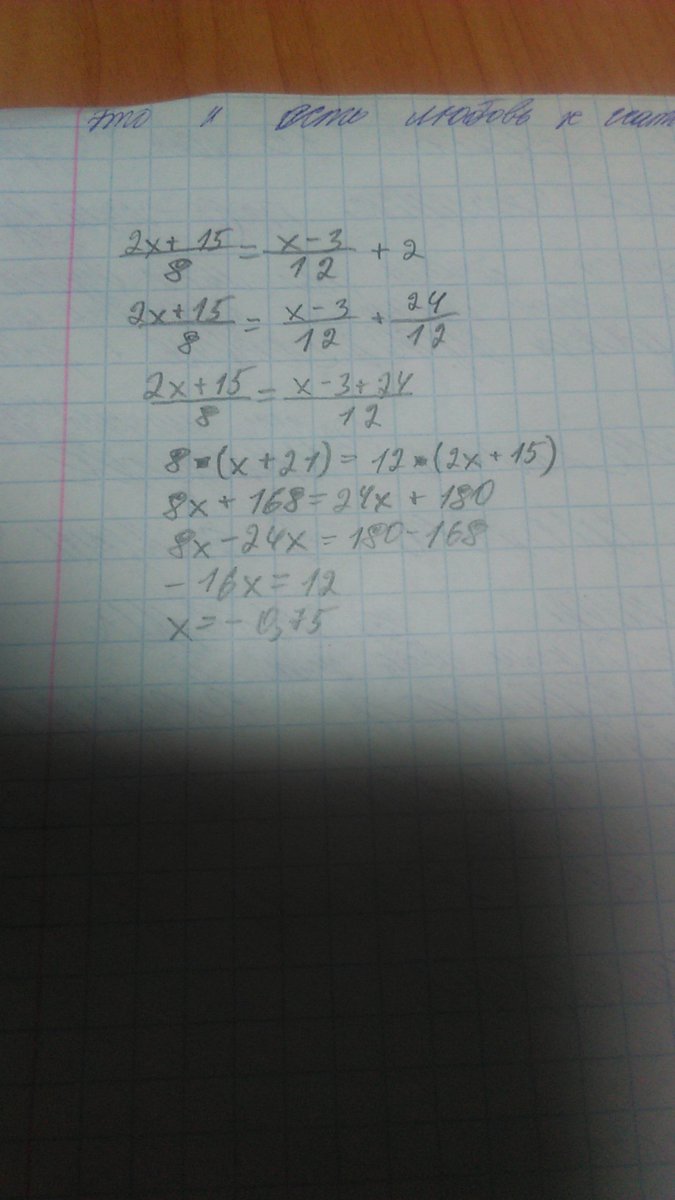 это и есть любовь к
2x+15/8 = x-3/12 + 2
2x+15/8 = x-3/12 + 24/12
2x+15/8 = x-3+24/12
8·(x+21)=12·(2x+15)
8x+168=24x+180
8x-24x=180-168
-16x=12
x=-0,75